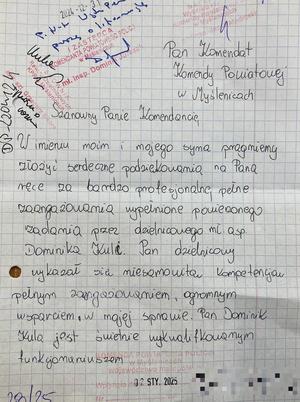 2024-12-31
ZASTĘPCA
KOMENDANTA POWIATOWEGO POLICJI
Pan Komendat
Komendy Powiatowej
w Myślenicach
Szanowny Panie Komendancie
W imieniu moim i mojego syna pragniemy
złożyć serdeczne podziękowania na Pana
ręce za bardzo profesjonalnej pełne
zaangażowania wypełnione powierzonego
zadania przez dzielnicowego mł. asp.
Dominika Kulę. Pan dzielnicowy
wykazał się niesamowitą kompetencją
pełnym zaangażowaniem, ogromnym
wsparciem, w mojej sprawie. Pan Dominik
Kula jest świetnie wykwalifikowanym
funkcjonariuszem
02 STY. 2025